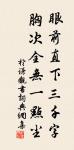 眼前直下三千字
胸次全無一點塵
於謙觀書詞典網集